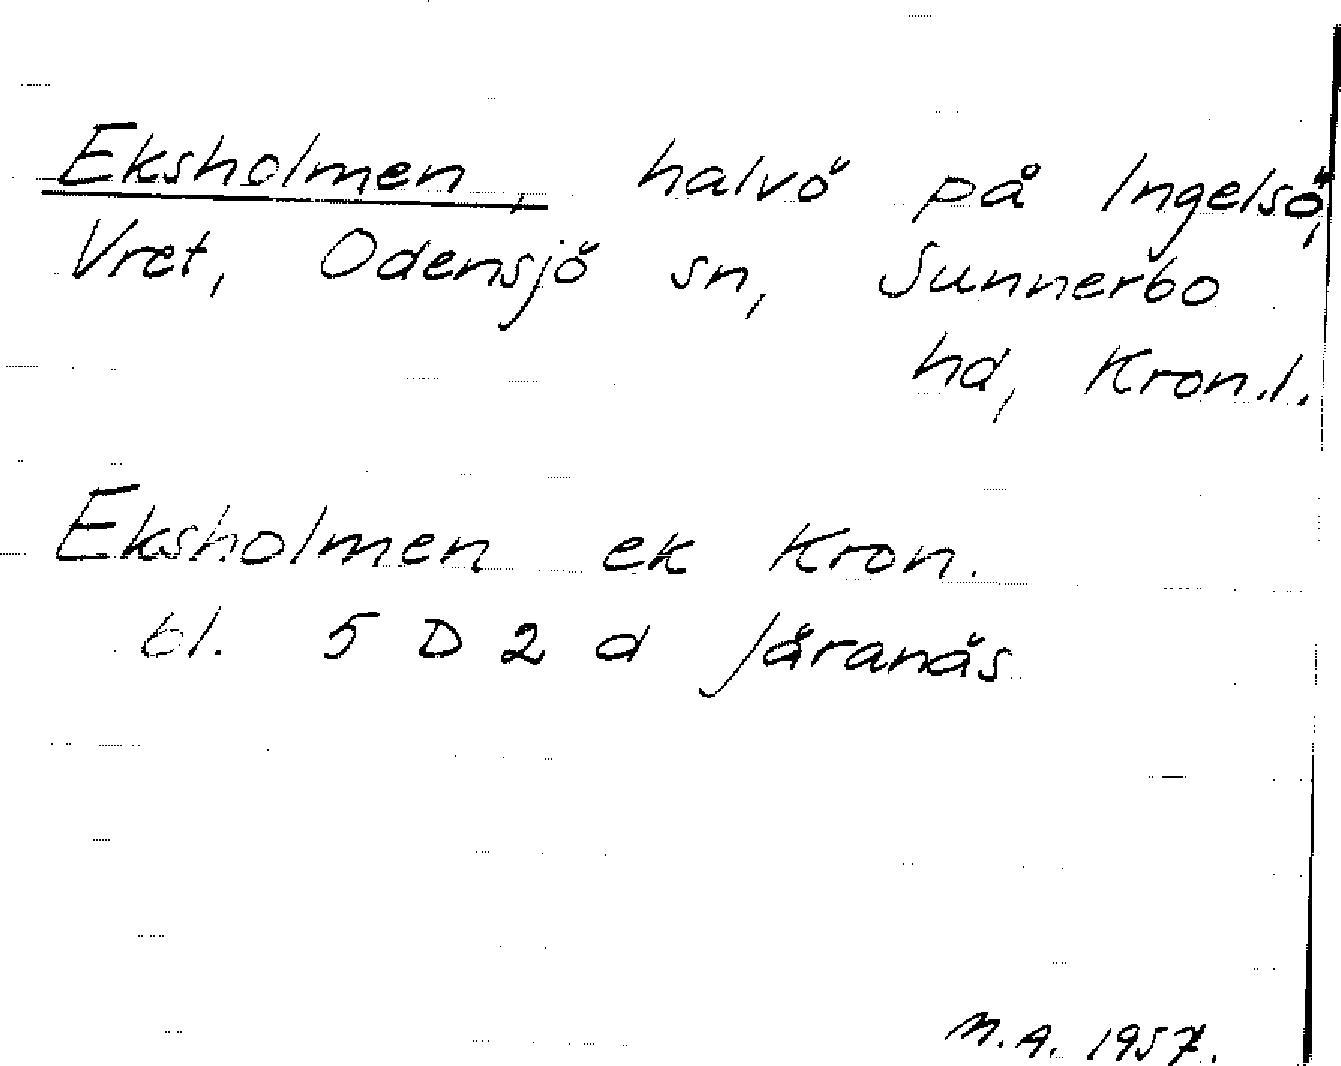 Eksholmen, halvö på Ingelsö,
Vret, Odensjö sn, Sunnerbo
hd, Kron.l.
Eksholmen ek Kron.
bl. 5 D 2 d Järanäs
M.A. 1957.